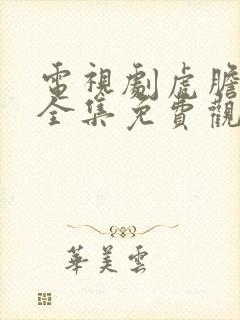 電視劇虎膽
全集免費觀
華美雲